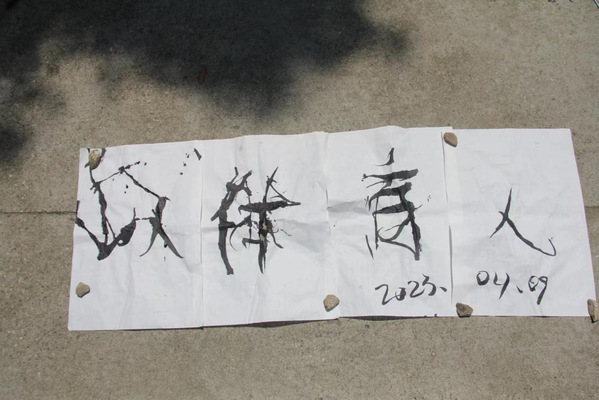 以体育人
2023. 04.09